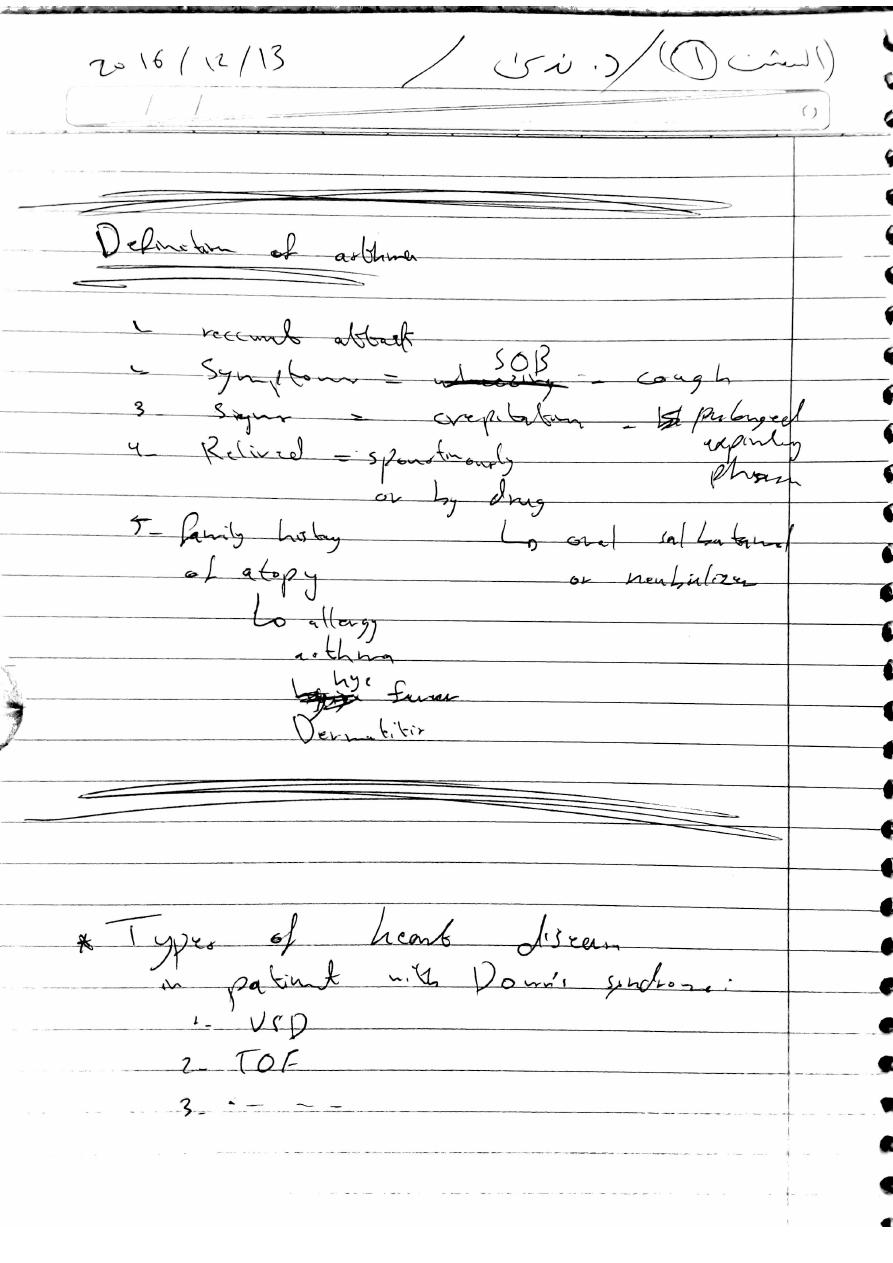 2016/12/13 / د. ندى / (السشن ①)
Definition of asthma
1- reccurent attack
2- Symptoms = SOB - cough
3- Signs = crepitation - prolonged
expiratory
phase
4- Relived = spontinously
or by drug
↳ oral salbutamol
or neubulizer
5- family history
of atopy
↳ allergy
asthma
hye fever
Dermatitis
* Types of heart disease
in patient with Down's syndrome:
1- VSD
2- TOF
3-